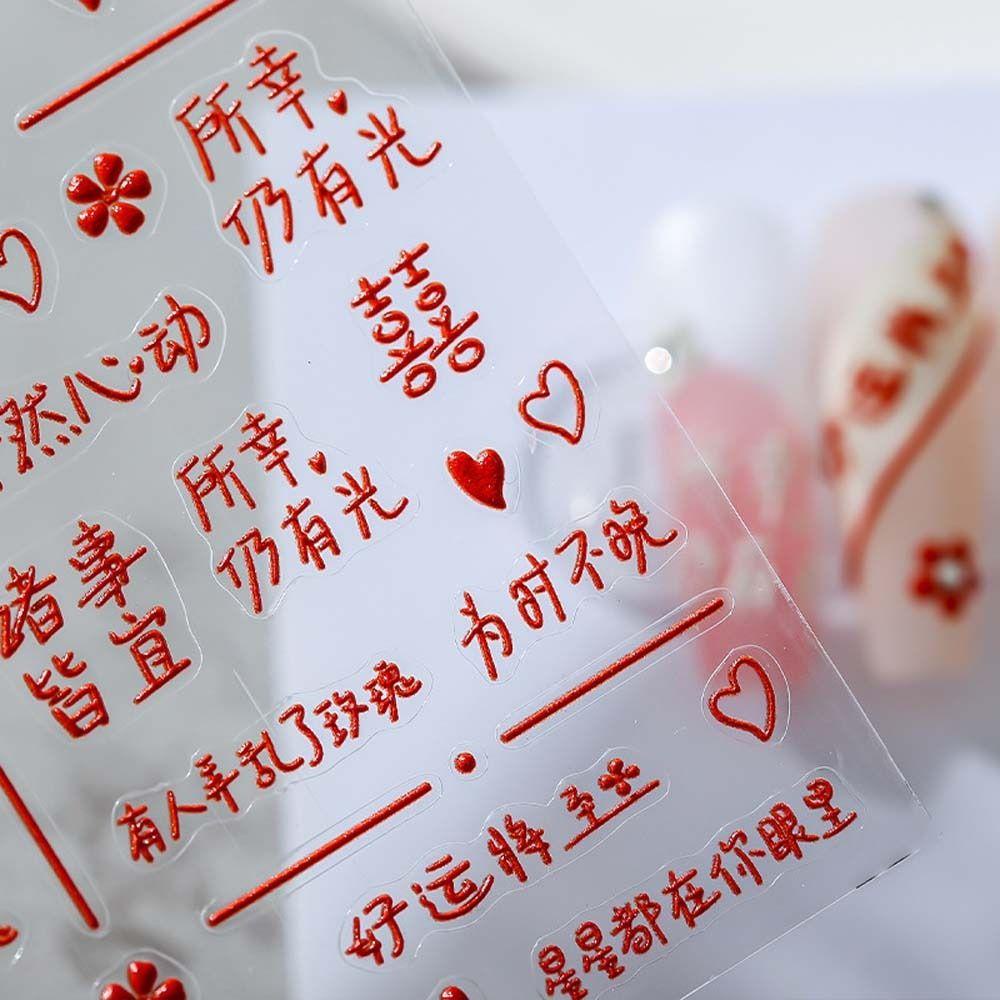 所幸
仍有光
囍
然心动
所幸
仍有光
诸事
皆宜
为时不晚
有人弄乱了玫瑰
好运将至
星星都在你眼里